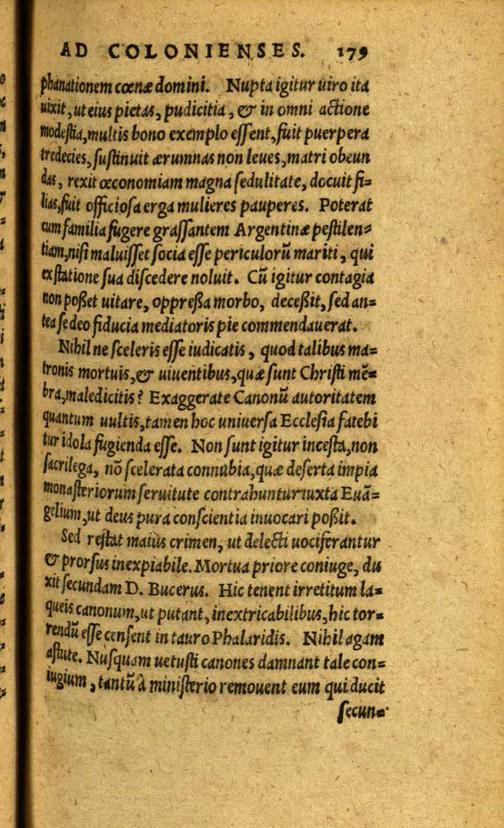 AD COLONIENSES. 179
phanationem cœnæ domini. Nupta igitur uiro ita
uixit, ut eius pietas, pudicitia, & in omni actione
modestia, multis bono exemplo essent, fuit puerpera
tredecies, sustinuit ærumnas non leues, matri obeun
das, rexit œconomiam magna sedulitate, docuit fi=
lias, fuit officiosa erga mulieres pauperes. Poterat
cum familia fugere grassantem Argentinæ pestilen=
tiam, nisi maluisset socia esse periculorū mariti, qui
ex statione sua discedere noluit. Cū igitur contagia
non posset uitare, oppressa morbo, decessit, sed an=
tea se deo fiducia mediatoris pie commendauerat.
Nihil ne sceleris esse iudicatis, quod talibus ma=
tronis mortuis, & uiuentibus, quæ sunt Christi mē=
bra, maledicitis? Exaggerate Canonū autoritatem
quantum uultis, tamen hoc uniuersa Ecclesia fatebi
tur idola fugienda esse. Non sunt igitur incesta, non
sacrilega, nō scelerata connubia, quæ deserta impia
monasteriorum seruitute contrahuntur iuxta Euā=
gelium, ut deus pura conscientia inuocari possit.
Sed restat maius crimen, ut delecti uociferantur
& prorsus inexpiabile. Mortua priore coniuge, du
xit secundam D. Bucerus. Hic tenent irretitum la=
queis canonum, ut putant, inextricabilibus, hic tor=
rendū esse censent in tauro Phalaridis. Nihil agam
astute. Nusquam uetusti canones damnant tale con=
iugium, tantū à ministerio remouent eum qui ducit
secun=